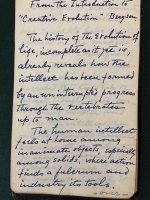 From the Introduction to
"Creative Evolution" - Bergson
The history of the evolution of
life, incomplete as it yet is,
already reveals how the
intellect has been formed
by an uninterrupted progress
through the vertebrates
up to man.
The human intellect
feels at home among
inanimate objects, especially
among solids, where action
finds a fulcrum and
industry its tools.